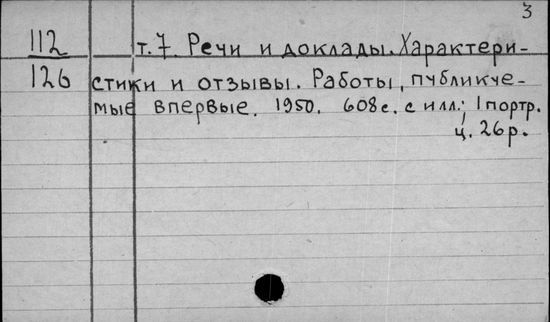 3
112 т. 7. Речи и доклады. Характери-
126 стики и отзывы. Работы, публикуе-
мые впервые. 1950. 608 с. с илл.; 1 портр.
ц. 26 р.